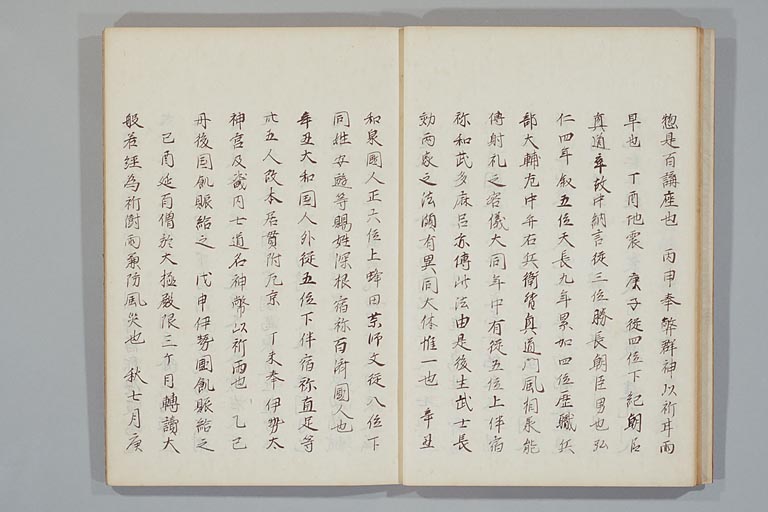 惣是百講座也　丙申奉幣群神以祈甘雨
早也　丁酉地震　庚子従四位下紀朝臣
真道卒故中納言従三位勝長朝臣男也弘
仁四年叙五位天長九年累加四位歴職兵
部大輔左中弁右兵衛督真道門風相承能
傳射礼之容儀大同年中有従五位上伴宿
祢和武多麻呂亦傳此法由是後生武士長
効両家之法頗有異同大体惟一也　辛丑
和泉國人正六位上蜂田薬師文従八位下
同姓安遊等賜姓深根宿祢百済國人也
辛丑大和国人外従五位下伴宿祢直足等
廿五人改本居貫附左京　丁未奉伊勢太
神宮及畿内七道名神幣以祈雨也　乙巳
丹後国飢賑給之　戊申伊勢國飢賑給之
己酉延百僧於大極殿限三ケ日轉讀大
般若経為祈澍雨兼防風災也　秋七月庚